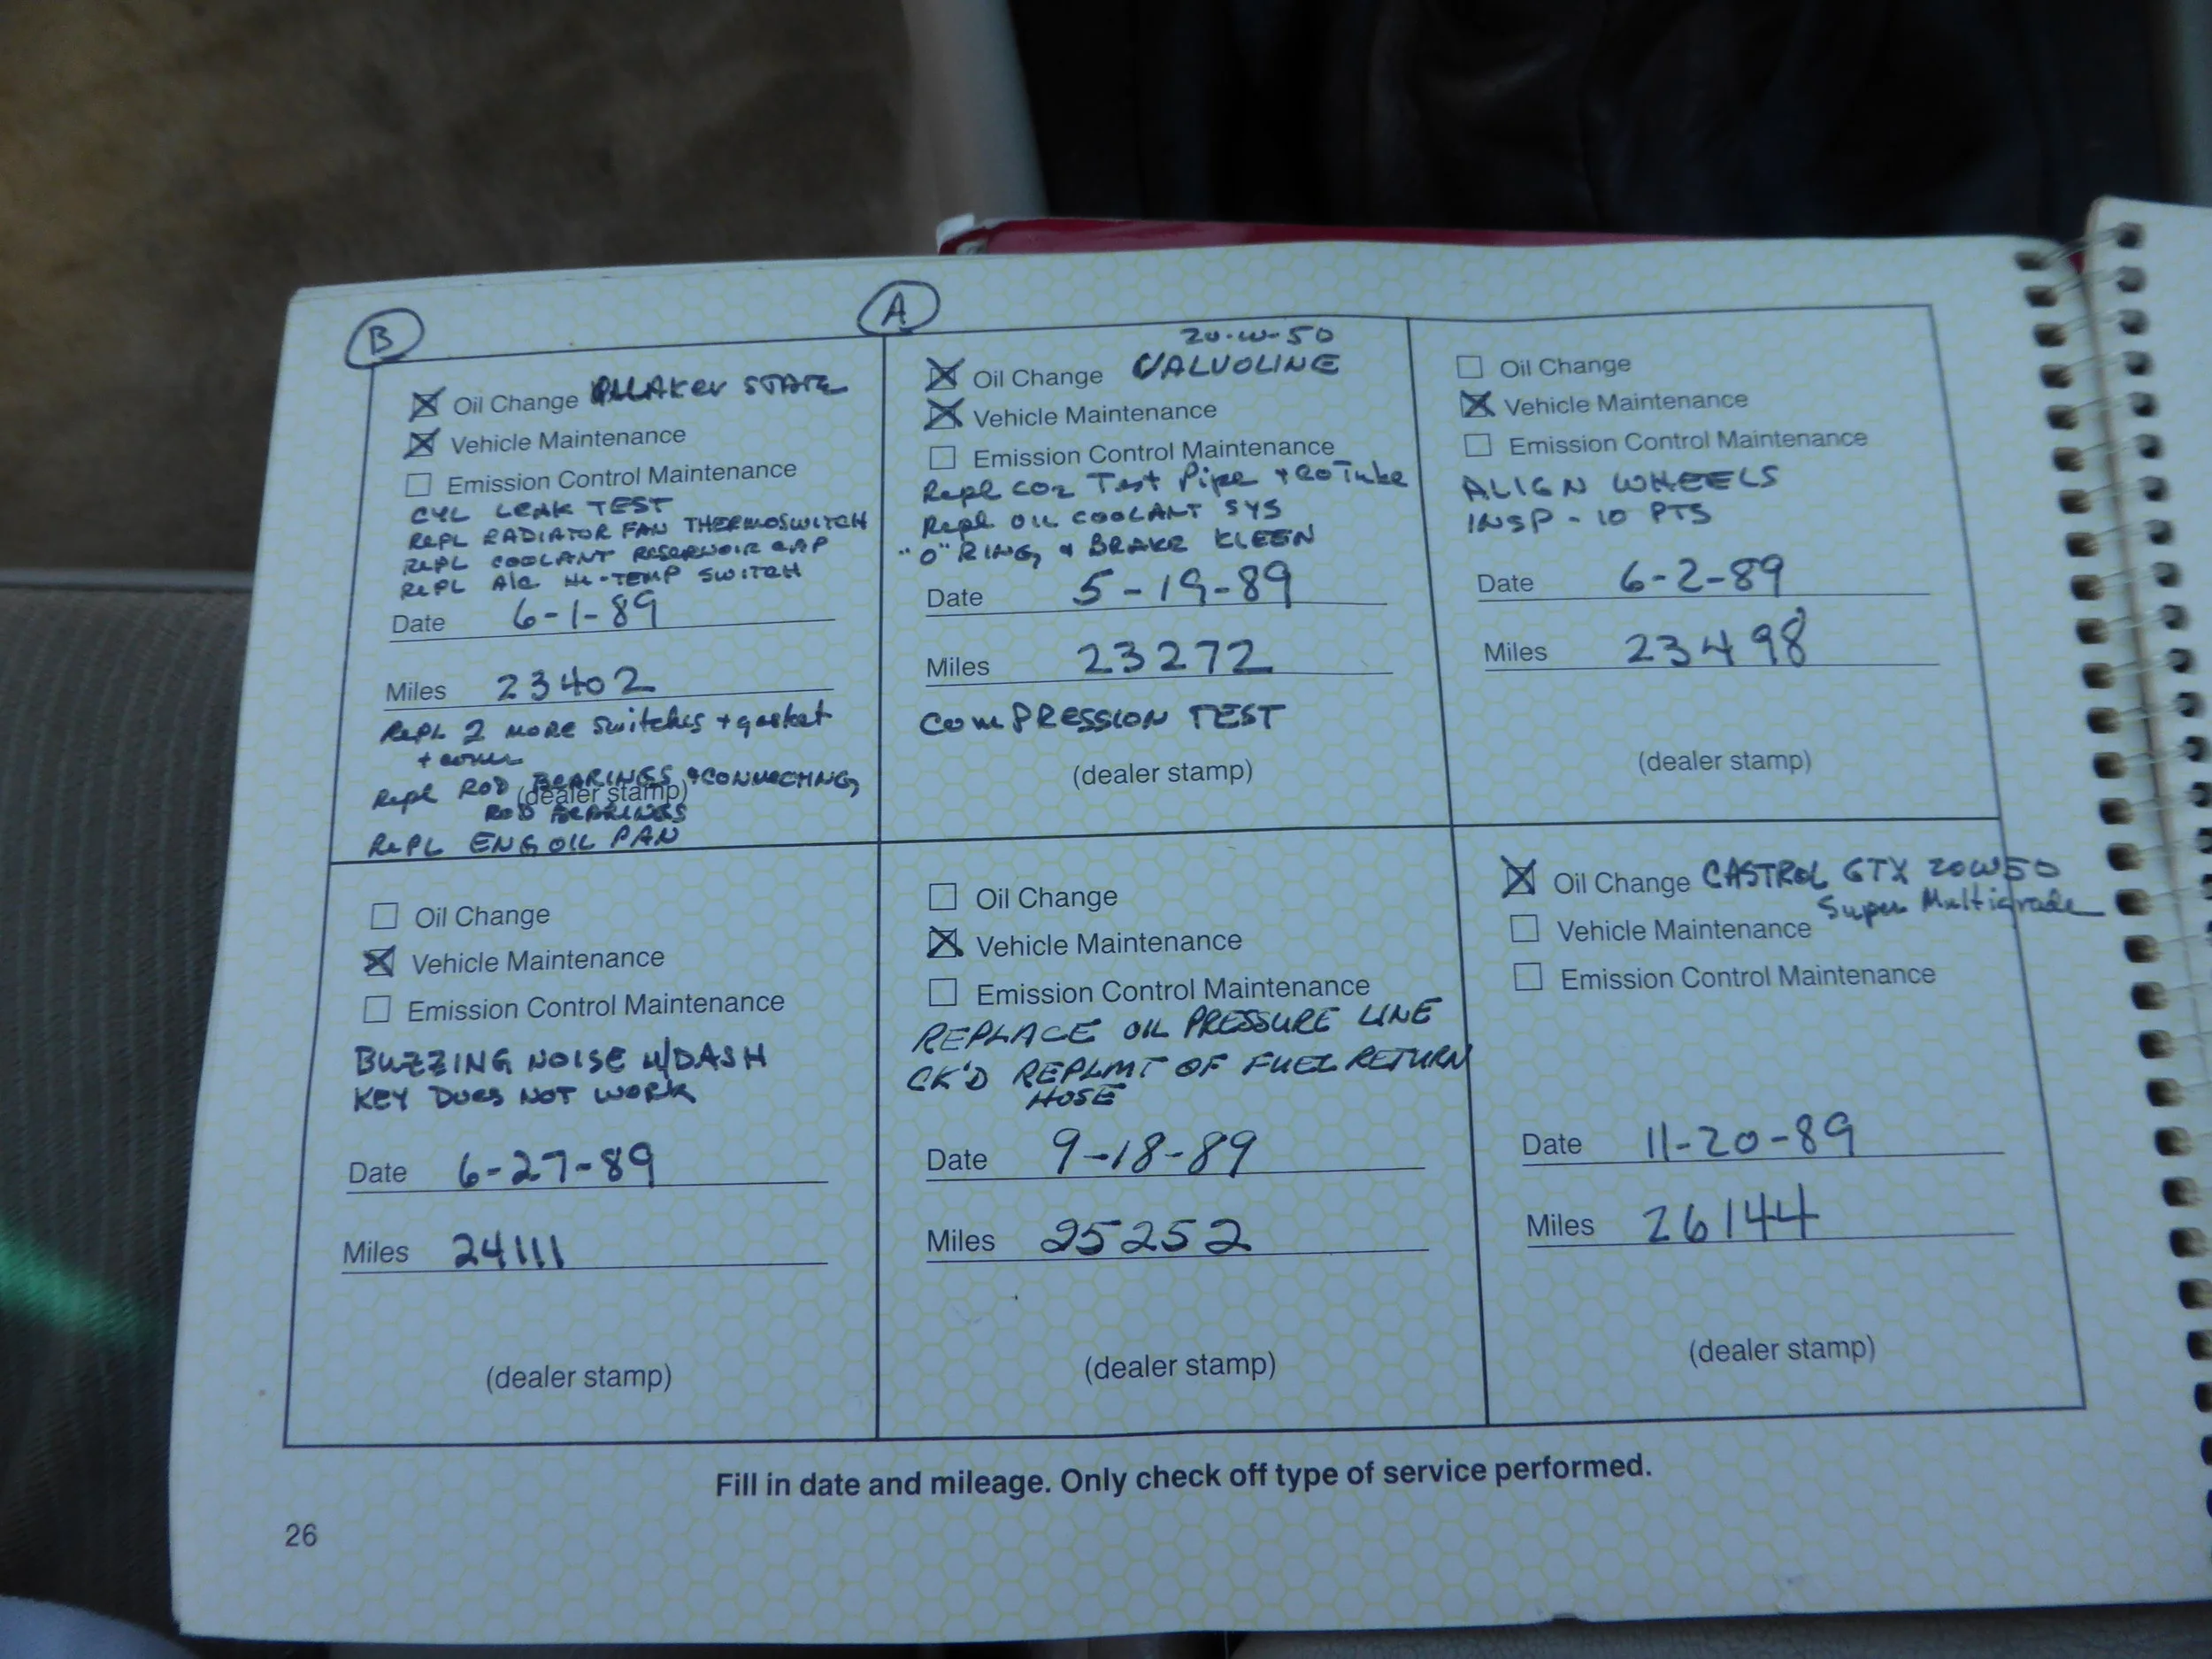 B
Oil Change QUAKER STATE
Vehicle Maintenance
Emission Control Maintenance
CYL LEAK TEST
REPL RADIATOR FAN THERMOSWITCH
REPL COOLANT RESERVOIR CAP
REPL A/C HI-TEMP SWITCH
Date 6-1-89
Miles 23402
REPL 2 MORE switches + gasket
+ cover
Repl ROD BEARINGS + CONNECTING
(dealer stamp)
ROD BEARINGS
REPL ENG OIL PAN
A
20-W-50
Oil Change VALVOLINE
Vehicle Maintenance
Emission Control Maintenance
Repl CO2 Test Pipe + CO Tube
Repl OIL COOLANT SYS
"O" RING, & BRAKE KLEEN
Date 5-19-89
Miles 23272
COMPRESSION TEST
(dealer stamp)
Oil Change
Vehicle Maintenance
Emission Control Maintenance
ALIGN WHEELS
INSP - 10 PTS
Date 6-2-89
Miles 23498
(dealer stamp)
Oil Change
Vehicle Maintenance
Emission Control Maintenance
BUZZING NOISE W/DASH
KEY DOES NOT WORK
Date 6-27-89
Miles 24111
(dealer stamp)
Oil Change
Vehicle Maintenance
Emission Control Maintenance
REPLACE OIL PRESSURE LINE
CK'D REPLMT OF FUEL RETURN
HOSE
Date 9-18-89
Miles 25252
(dealer stamp)
Oil Change CASTROL GTX 20W50
Super Multigrade
Vehicle Maintenance
Emission Control Maintenance
Date 11-20-89
Miles 26144
(dealer stamp)
Fill in date and mileage. Only check off type of service performed.
26